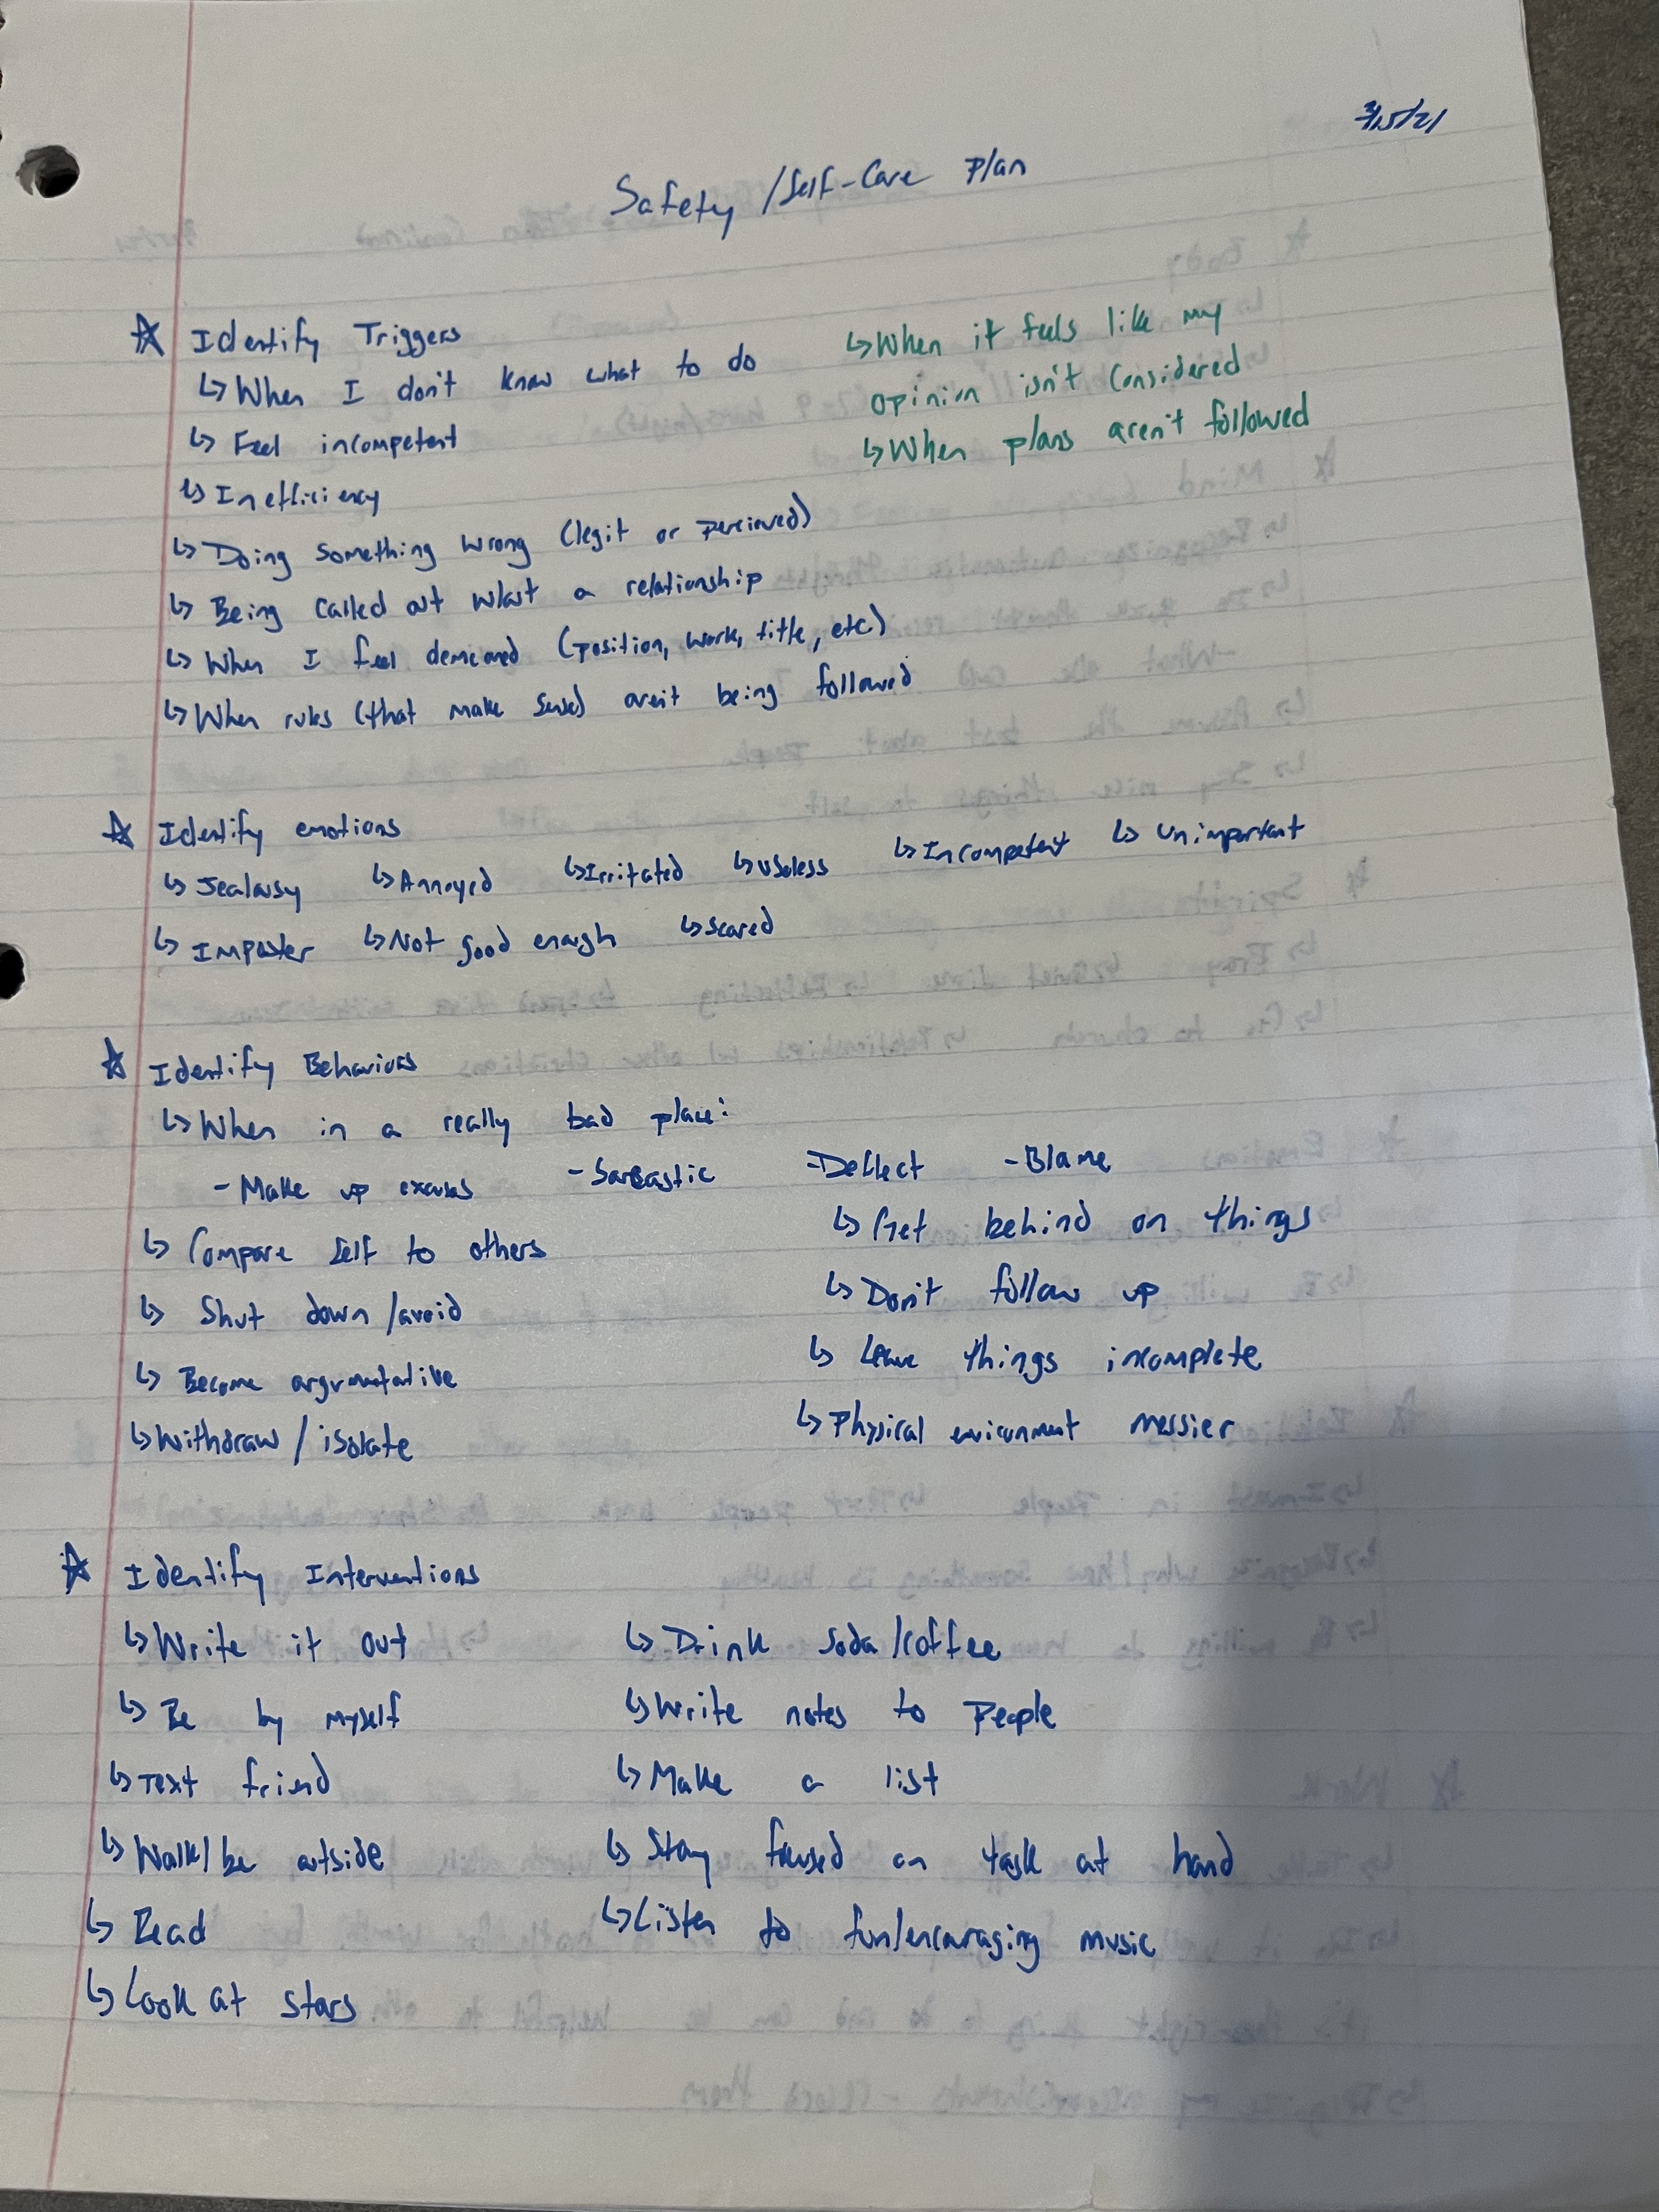 3/15/21
Safety/Self-Care Plan
☆ Identify Triggers
↳ When I don't know what to do
↳ Feel incompetent
↳ Inefficiency
↳ Doing something wrong (legit or percieved)
↳ Being called out w/out a relationship
↳ When I feel demeaned (position, work, title, etc)
↳ When rules (that make sense) aren't being followed
↳ When it feels like my
opinion isn't considered
↳ When plans aren't followed
☆ Identify emotions
↳ Jealousy ↳ Annoyed ↳ Irritated ↳ Useless ↳ Incompetent ↳ Unimportant
↳ Imposter ↳ Not good enough ↳ Scared
☆ Identify Behaviors
↳ When in a really bad place:
- Make up excuses - Sarcastic - Deflect - Blame
↳ Compare self to others
↳ Shut down/avoid
↳ Become argumentative
↳ Withdraw/isolate
↳ Get behind on things
↳ Don't follow up
↳ Leave things incomplete
↳ Physical environment messier
☆ Identify Interventions
↳ Write it out
↳ Be by myself
↳ Text friend
↳ Walk/be outside
↳ Read
↳ Look at stars
↳ Drink soda/coffee
↳ Write notes to people
↳ Make a list
↳ Stay focused on task at hand
↳ Listen to fun/encouraging music